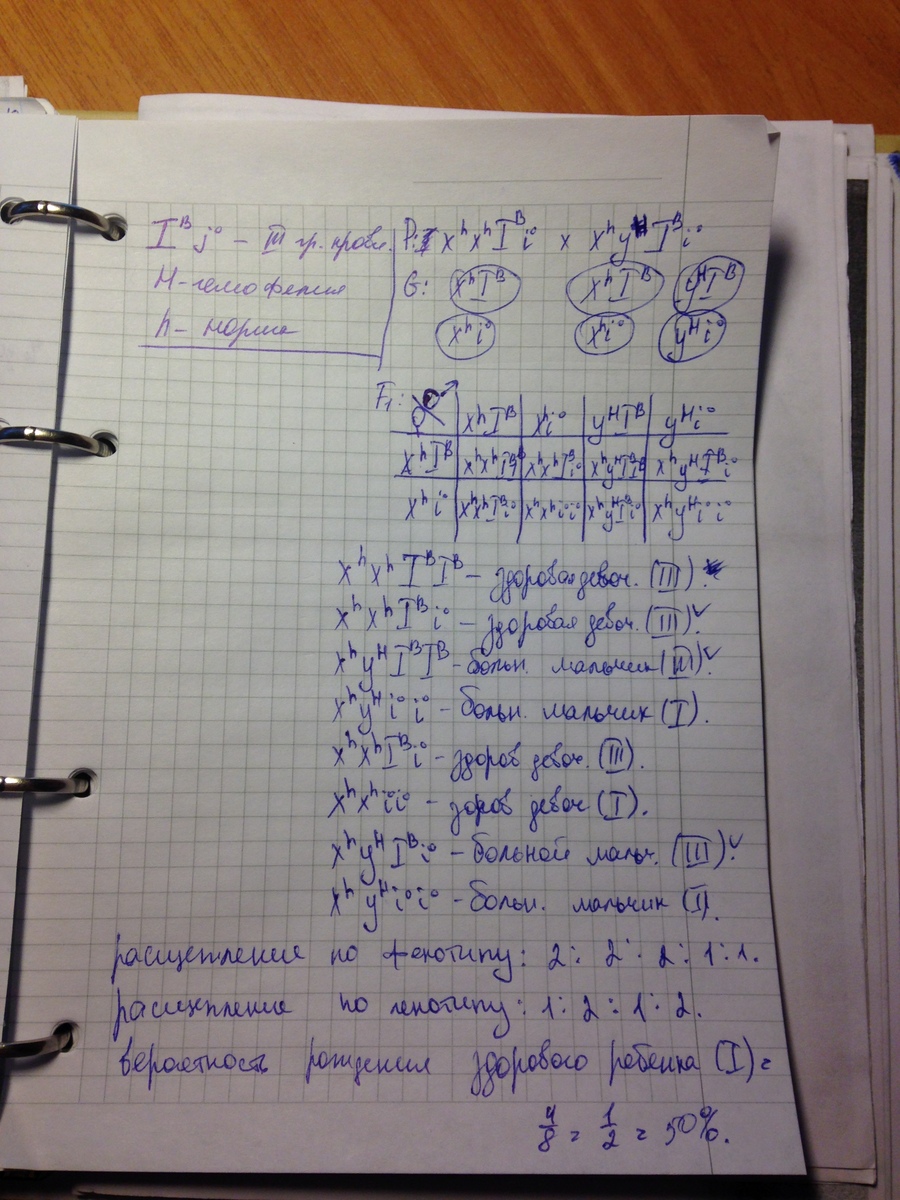 I^B j^o – III гр. крови.
H-гемофелия
h – норма
P: x^h x^h I^B i^o x x^h y^H I^B i^o
G: x^h I^B x^h I^B y^H I^B
x^h i^o x^h i^o y^H i^o
F₁: ♀ ♂ x^h I^B x^h i^o y^H I^B y^H i^o
x^h I^B x^h x^h I^B I^B x^h x^h I^B i^o x^h y^H I^B I^B x^h y^H I^B i^o
x^h i^o x^h x^h I^B i^o x^h x^h i^o i^o x^h y^H I^B i^o x^h y^H i^o i^o
x^h x^h I^B I^B – здоровая девоч. (III).
x^h x^h I^B i^o – здоровая девоч. (III) ✓
x^h y^H I^B I^B - больн. мальчик (III) ✓
x^h y^H i^o i^o - больн. мальчик (I).
x^h x^h I^B i^o - здоров девоч. (III).
x^h x^h i^o i^o – здоров девоч (I).
x^h y^H I^B i^o – больной мальч. (III) ✓
x^h y^H i^o i^o - больн. мальчик (I).
расщепление по фенотипу: 2 : 2 : 2 : 1 : 1.
расщепление по генотипу: 1 : 2 : 1 : 2.
вероятность рождения здорового ребенка (I) =
4/8 = 1/2 = 50%.